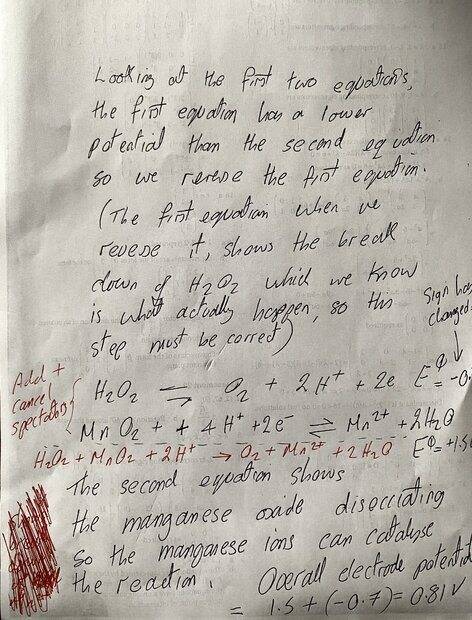 Looking at the first two equations,
the first equation has a lower
potential than the second equation
so we reverse the first equation.
(The first equation when we
reverse it, shows the break
down of H₂O₂ which we know
is what actually happen, so this
step must be correct)
Sign has
changed
↓
Add +
cancel
spectators
H₂O₂ ⇌ O₂ + 2H⁺ + 2e E⦵ = -0.
MnO₂ + + 4H⁺ + 2e⁻ ⇌ Mn²⁺ + 2H₂O
H₂O₂ + MnO₂ + 2H⁺ → O₂ + Mn²⁺ + 2H₂O E⦵ = +1.5
The second equation shows
the manganese oxide disocciating
so the manganese ions can catalyse
the reaction. Overall electrode potential
= 1.5 + (-0.7) = 0.81 V